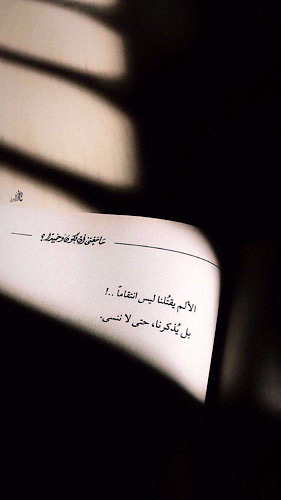 ما معنى أن تكون وحيدًا؟
الألم يقتُلنا ليس انتقاماً ..!
بل يُذكرنا، حتى لا ننسى.